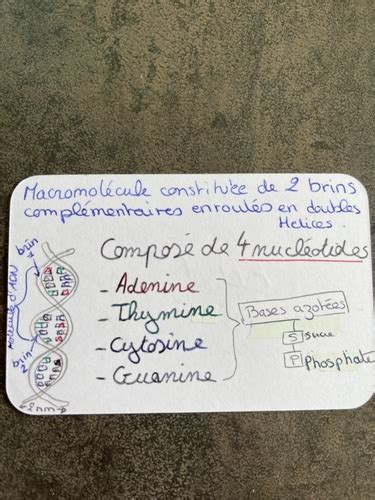 Macromolécule constituée de 2 brins
complémentaires enroulés en doubles
Helices.
Composé de 4 nucléotides
- Adenine
- Thymine
- Cytosine
- Guanine
Bases azotées
S sucre
P Phosphate
Molécule d'ADN
brin 1
brin 2
2 nm